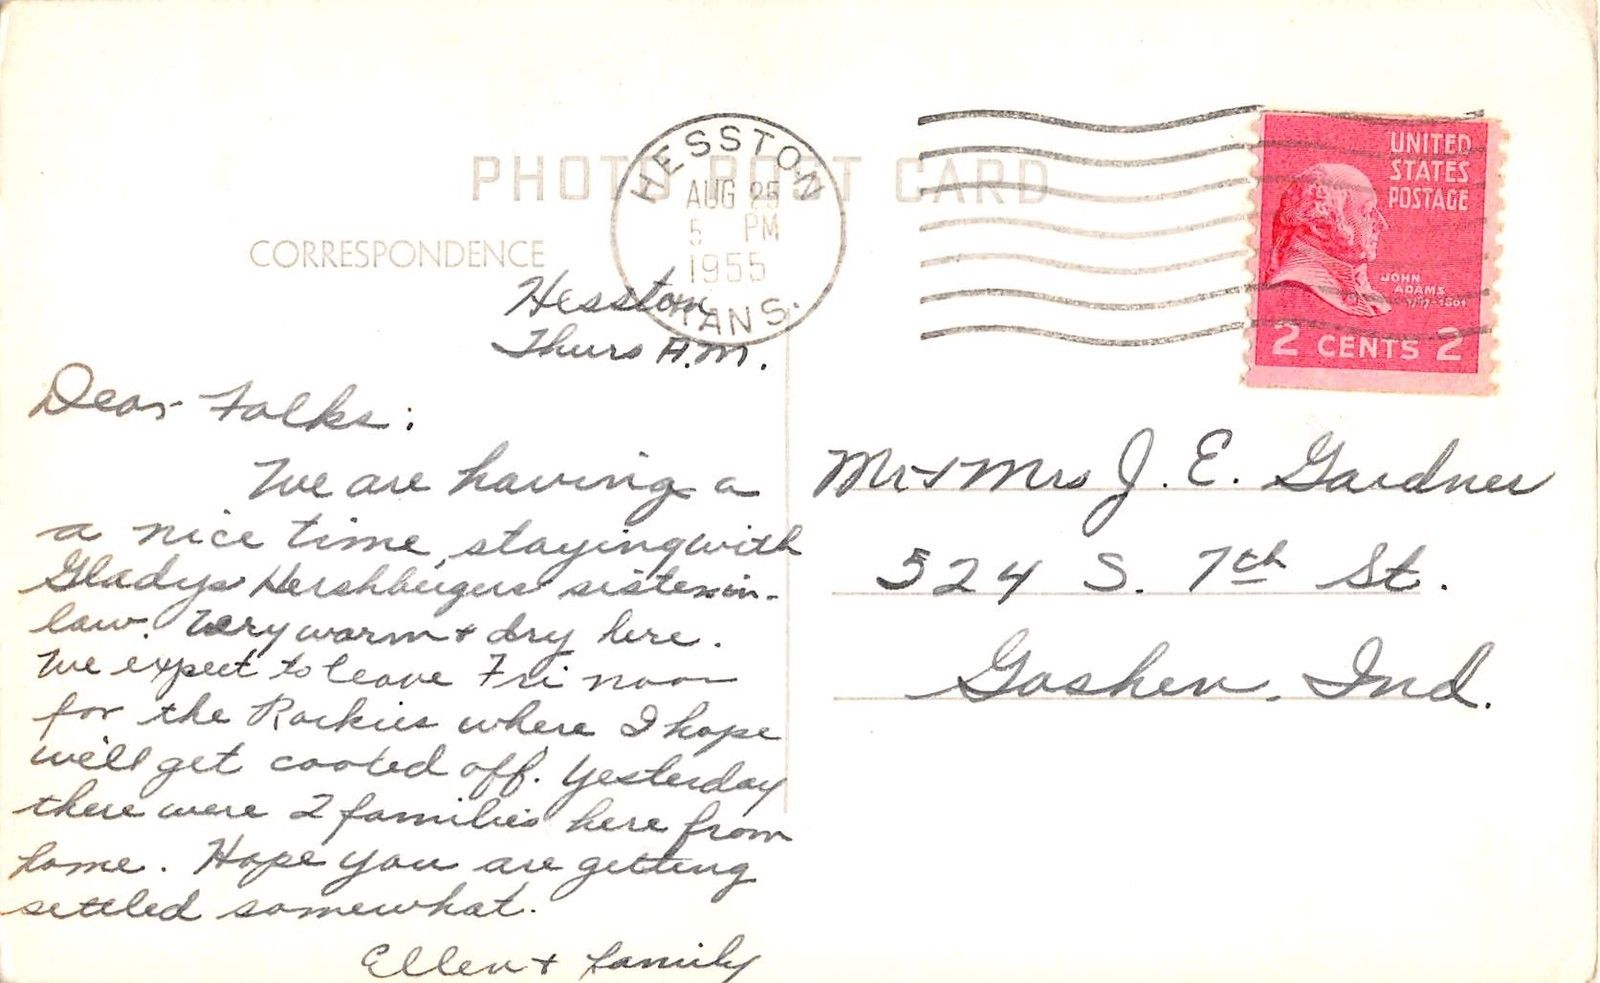 PHOTO POST CARD
CORRESPONDENCE
HESSTON
AUG 25
5 PM
1955
KANS.
UNITED
STATES
POSTAGE
JOHN
ADAMS
1797-1801
2 CENTS 2
Hesston
Thurs A.M.
Dear Folks:
We are having a
a nice time, staying with
Gladys Hershbergers sister in-
law. Very warm + dry here.
We expect to leave Fri noon
for the Rockies where I hope
we'll get cooled off. Yesterday
there were 2 families here from
home. Hope you are getting
settled somewhat.
Ellen + family
Mr + Mrs J. E. Gardner
524 S. 7th St.
Goshen, Ind.